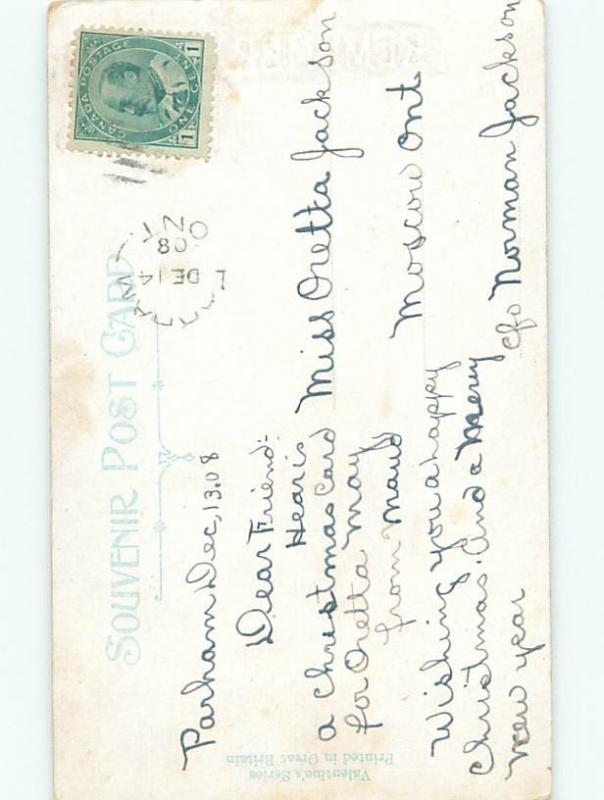 SOUVENIR POST CARD
CANADA POSTAGE
1 ONE CENT 1
DE 14
08
ONT
Parham Dec, 13.08
Dear Friend:-
Hear is
a christmas card
for Oretta may
from maud
Wishing you a happy
Christmas. And a Merry
new year
Miss Oretta Jackson
Moscow Ont
c/o Norman Jackson
Valentine's Series
Printed in Great Britain